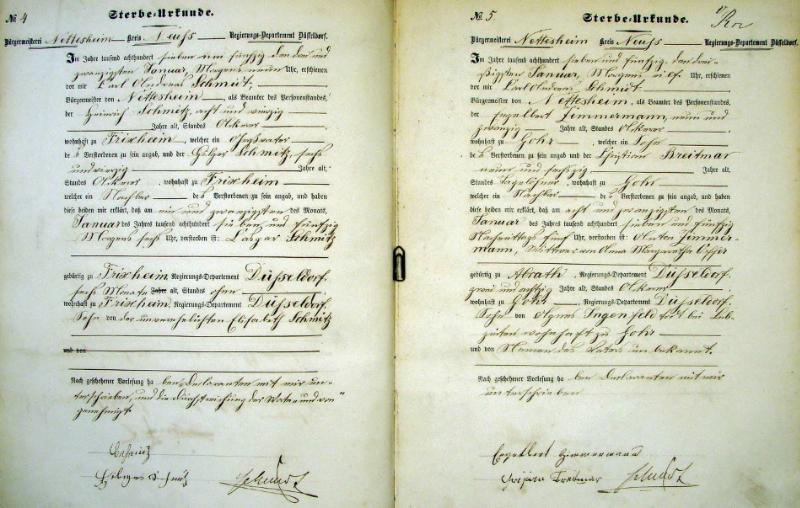 № 4
Sterbe-Urkunde.
Bürgermeisterei Nettesheim Kreis Neuss Regierungs-Departement Düsseldorf.
Im Jahre tausend achthundert sieben und fünfzig den drei und
zwanzigsten Januar, Morgens neun Uhr, erschienen
vor mir Carl Andreas Schmidt,
Bürgermeister von Nettesheim, als Beamter des Personenstandes,
der Heinrich Schmitz, acht und vierzig
Jahre alt, Standes Ackerer
wohnhaft zu Frixheim welcher ein
de s Verstorbenen zu sein angab, und der Schmitz, sechs
und vierzig Jahre alt,
Standes Ackerer, wohnhaft zu Frixheim
welcher ein Nachbar de s Verstorbenen zu sein angab, und haben
diese beiden mir erklärt, daß am ein und zwanzigsten des Monats
Januar des Jahres achthundert sieben und fünfzig
Morgens sechs Uhr, verstorben ist: Caspar Schmitz
gebürtig zu Frixheim, Regierungs-Departement Düsseldorf,
sechs Monate Jahre alt, Standes ohne
wohnhaft zu Frixheim, Regierungs-Departement Düsseldorf,
Sohn von der unverehelichten Elisabeth Schmitz
und von
Nach geschehener Vorlesung haben Declaranten mit mir un-
terschrieben, und die Durchstreichung der Worte und von
genehmigt
Schmitz
Schmitz Schmidt
№ 5.
Sterbe-Urkunde.
Bürgermeisterei Nettesheim Kreis Neuss Regierungs-Departement Düsseldorf.
Im Jahre tausend achthundert sieben und fünfzig, den drei-
ßigsten Januar, Morgens elf Uhr, erschienen
vor mir Carl Andreas Schmidt,
Bürgermeister von Nettesheim, als Beamter des Personenstandes,
der Engelbert Zimmermann, neun und
zwanzig Jahre alt, Standes Ackerer
wohnhaft zu Gohr, welcher ein Sohn
de s Verstorbenen zu sein angab, und der Christian Breitmar
neun und sechzig Jahre alt,
Standes Tagelöhner, wohnhaft zu Gohr
welcher ein Nachbar de s Verstorbenen zu sein angab, und haben
diese beiden mir erklärt, daß am acht und zwanzigsten des Monats
Januar des Jahres achthundert sieben und fünfzig
Nachmittags fünf Uhr, verstorben ist: Anton Zimmer-
mann, Wittwer von Anna Margaretha
gebürtig zu Allrath, Regierungs-Departement Düsseldorf,
zwei und achtzig Jahre alt, Standes Ackerer
wohnhaft zu Gohr, Regierungs-Departement Düsseldorf,
Sohn von Agnes Ingenfeld todt bei Leb-
zeiten wohnhaft zu Gohr
und von Namen des Vaters unbekannt.
Nach geschehener Vorlesung haben Declaranten mit mir
unterschrieben
Engelbert Zimmermann
Schmidt